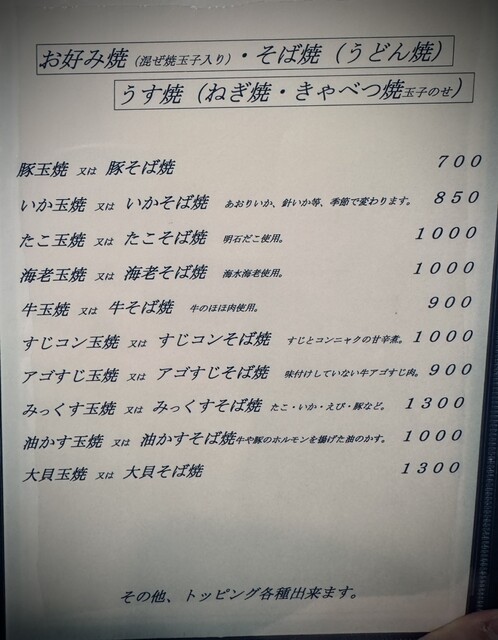 お好み焼(混ぜ焼玉子入り)・そば焼(うどん焼)
うす焼(ねぎ焼・きゃべつ焼玉子のせ)
豚玉焼 又は 豚そば焼 700
いか玉焼 又は いかそば焼 あおりいか、針いか等、季節で変わります。 850
たこ玉焼 又は たこそば焼 明石だこ使用。 1000
海老玉焼 又は 海老そば焼 海水海老使用。 1000
牛玉焼 又は 牛そば焼 牛のほほ肉使用。 900
すじコン玉焼 又は すじコンそば焼 すじとコンニャクの甘辛煮。 1000
アゴすじ玉焼 又は アゴすじそば焼 味付けしていない牛アゴすじ肉。 900
みっくす玉焼 又は みっくすそば焼 たこ・いか・えび・豚など。 1300
油かす玉焼 又は 油かすそば焼 牛や豚のホルモンを揚げた油のかす。 1000
大貝玉焼 又は 大貝そば焼 1300
その他、トッピング各種出来ます。